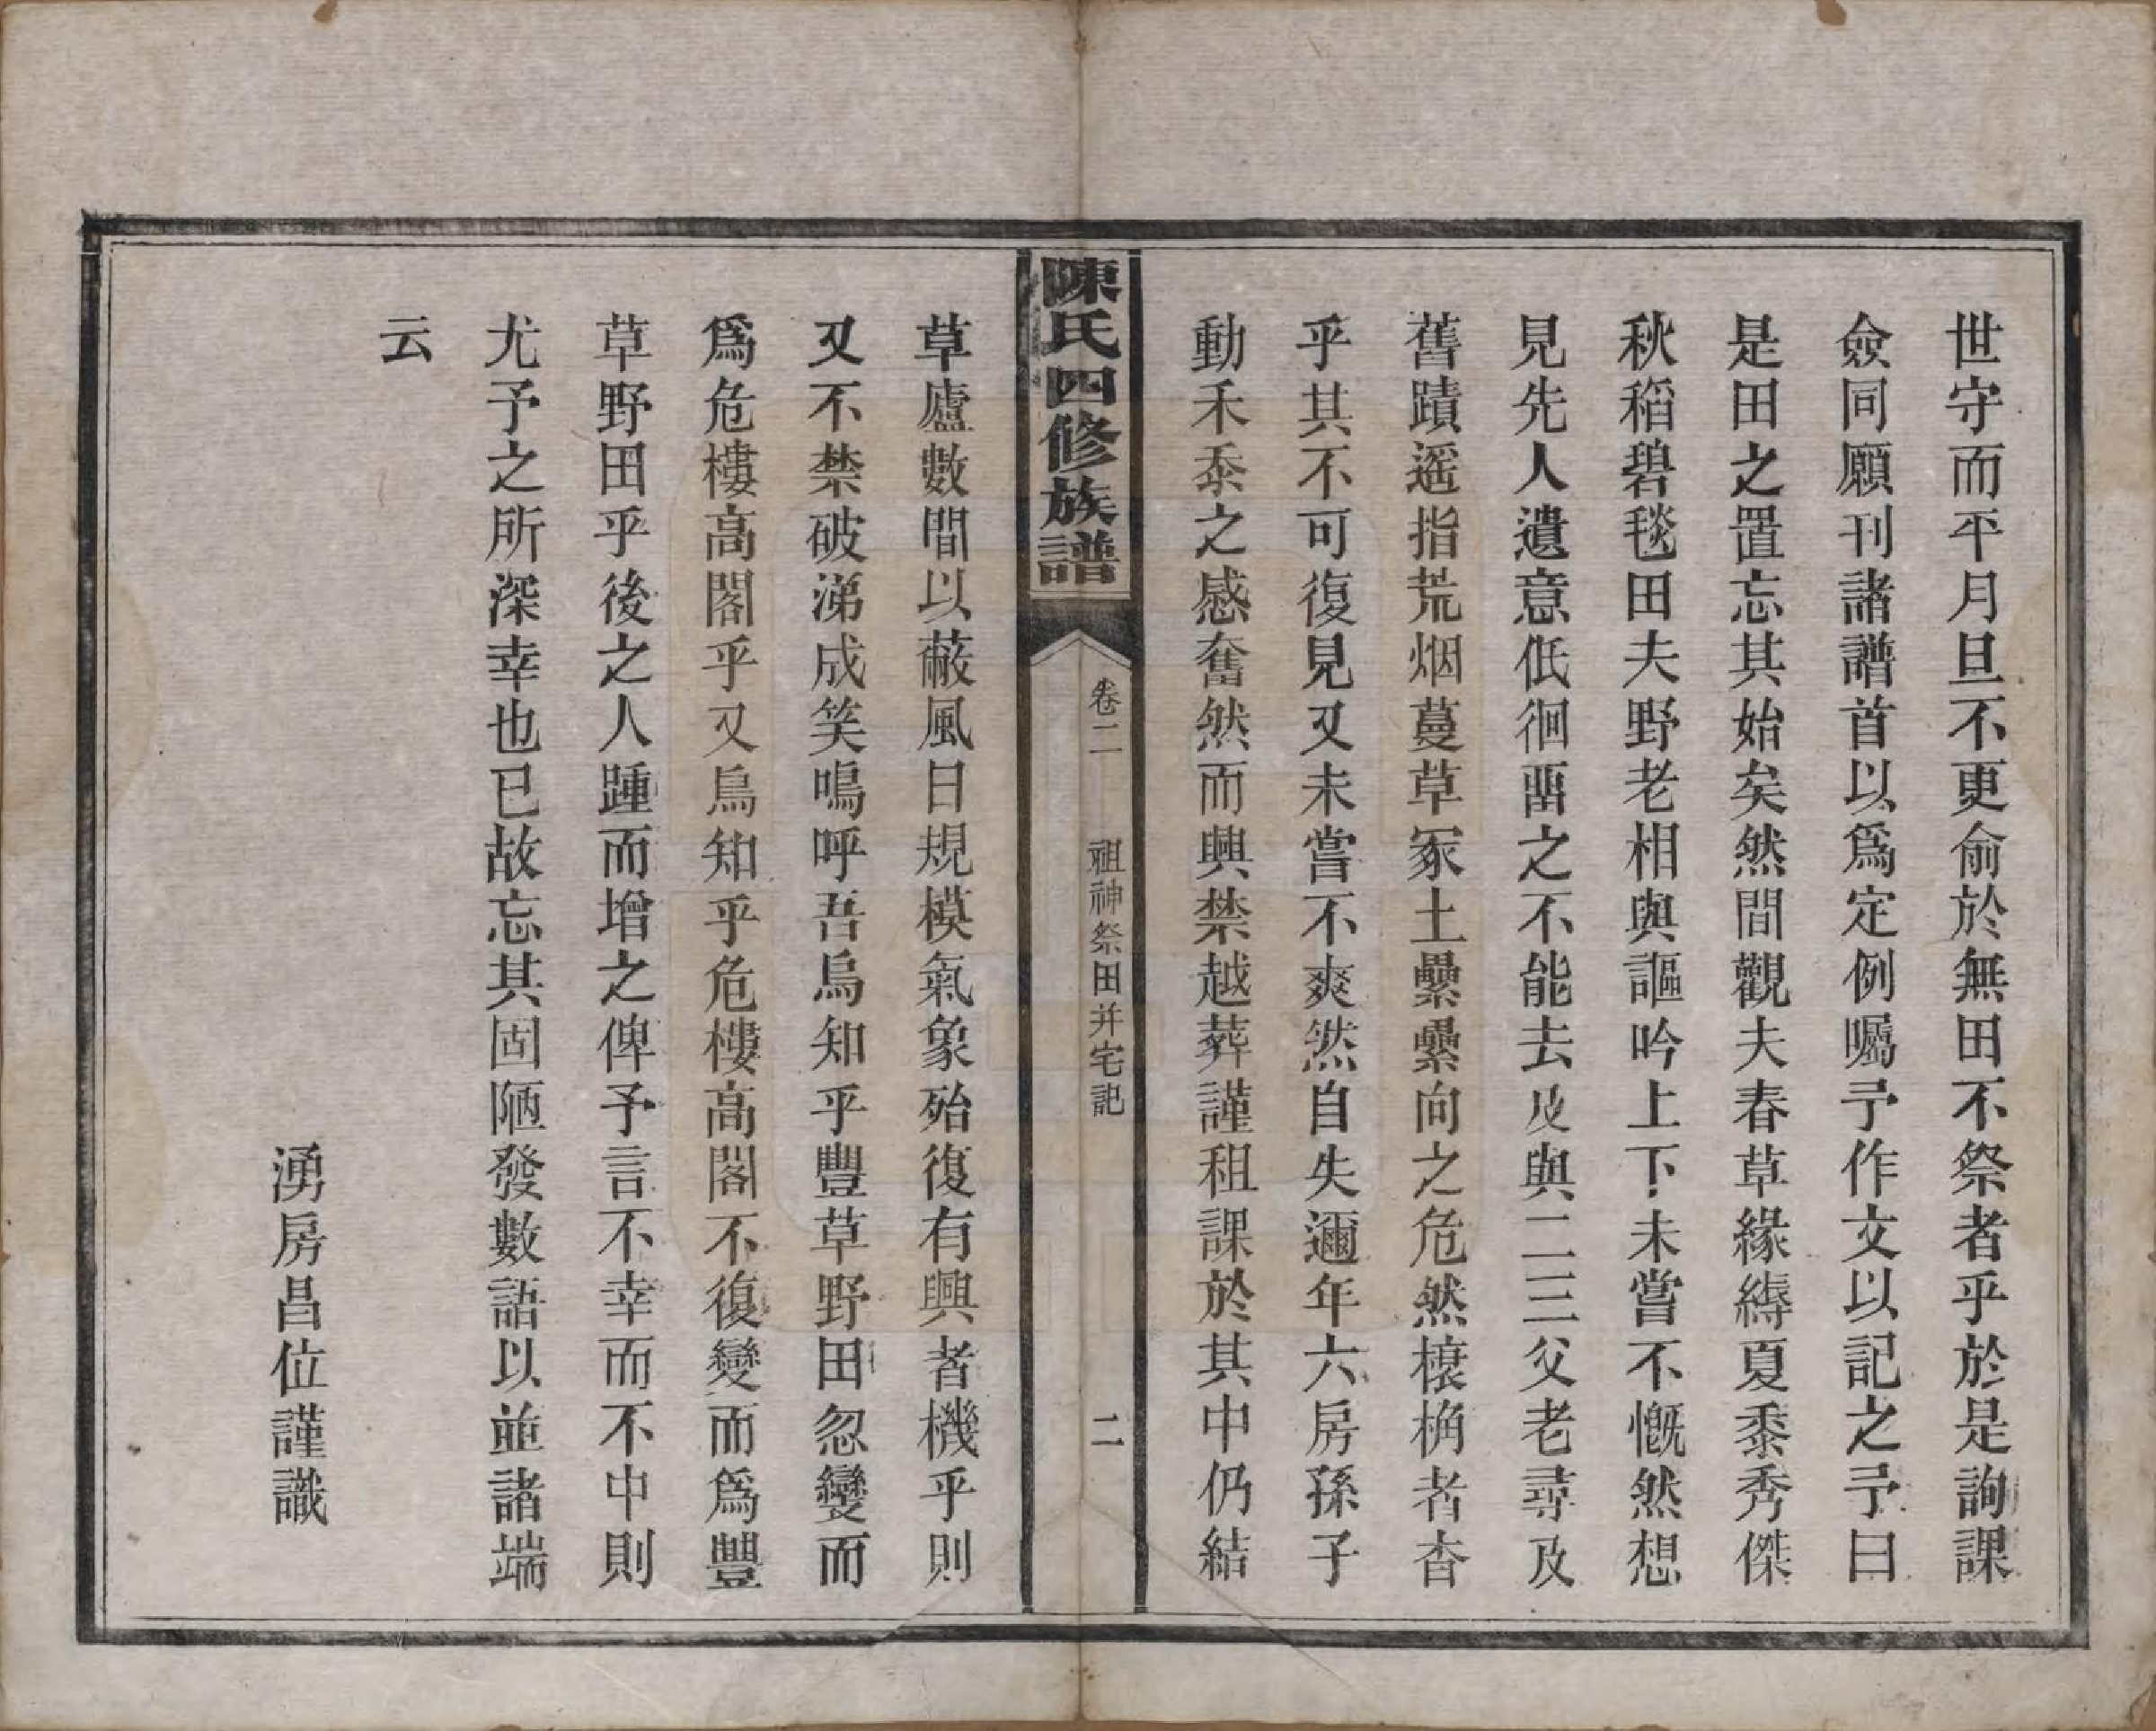 世守而平月旦不更俞於無田不祭者乎於是詢課
僉同願刊諸譜首以爲定例囑予作文以記之予曰
是田之置忘其始矣然間觀夫春草緣縟夏黍秀傑
秋稻碧毯田夫野老相與謳吟上下未嘗不慨然想
見先人遺意低徊畱之不能去及與二三父老尋及
舊蹟遥指荒烟蔓草冢土纍纍向之危然榱桷者杳
乎其不可復見又未嘗不爽然自失邇年六房孫子
動禾黍之感奮然而興禁越葬謹租課於其中仍結
陳氏四修族譜
卷二 祖神祭田并宅記 二
草廬數間以蔽風日規模氣象殆復有興者機乎則
又不禁破涕成笑嗚呼吾烏知乎豐草野田忽變而
爲危樓高閣乎又烏知乎危樓高閣不復變而爲豐
草野田乎後之人踵而增之俾予言不幸而不中則
尤予之所深幸也已故忘其固陋發數語以並諸端
云
湧房昌位謹識